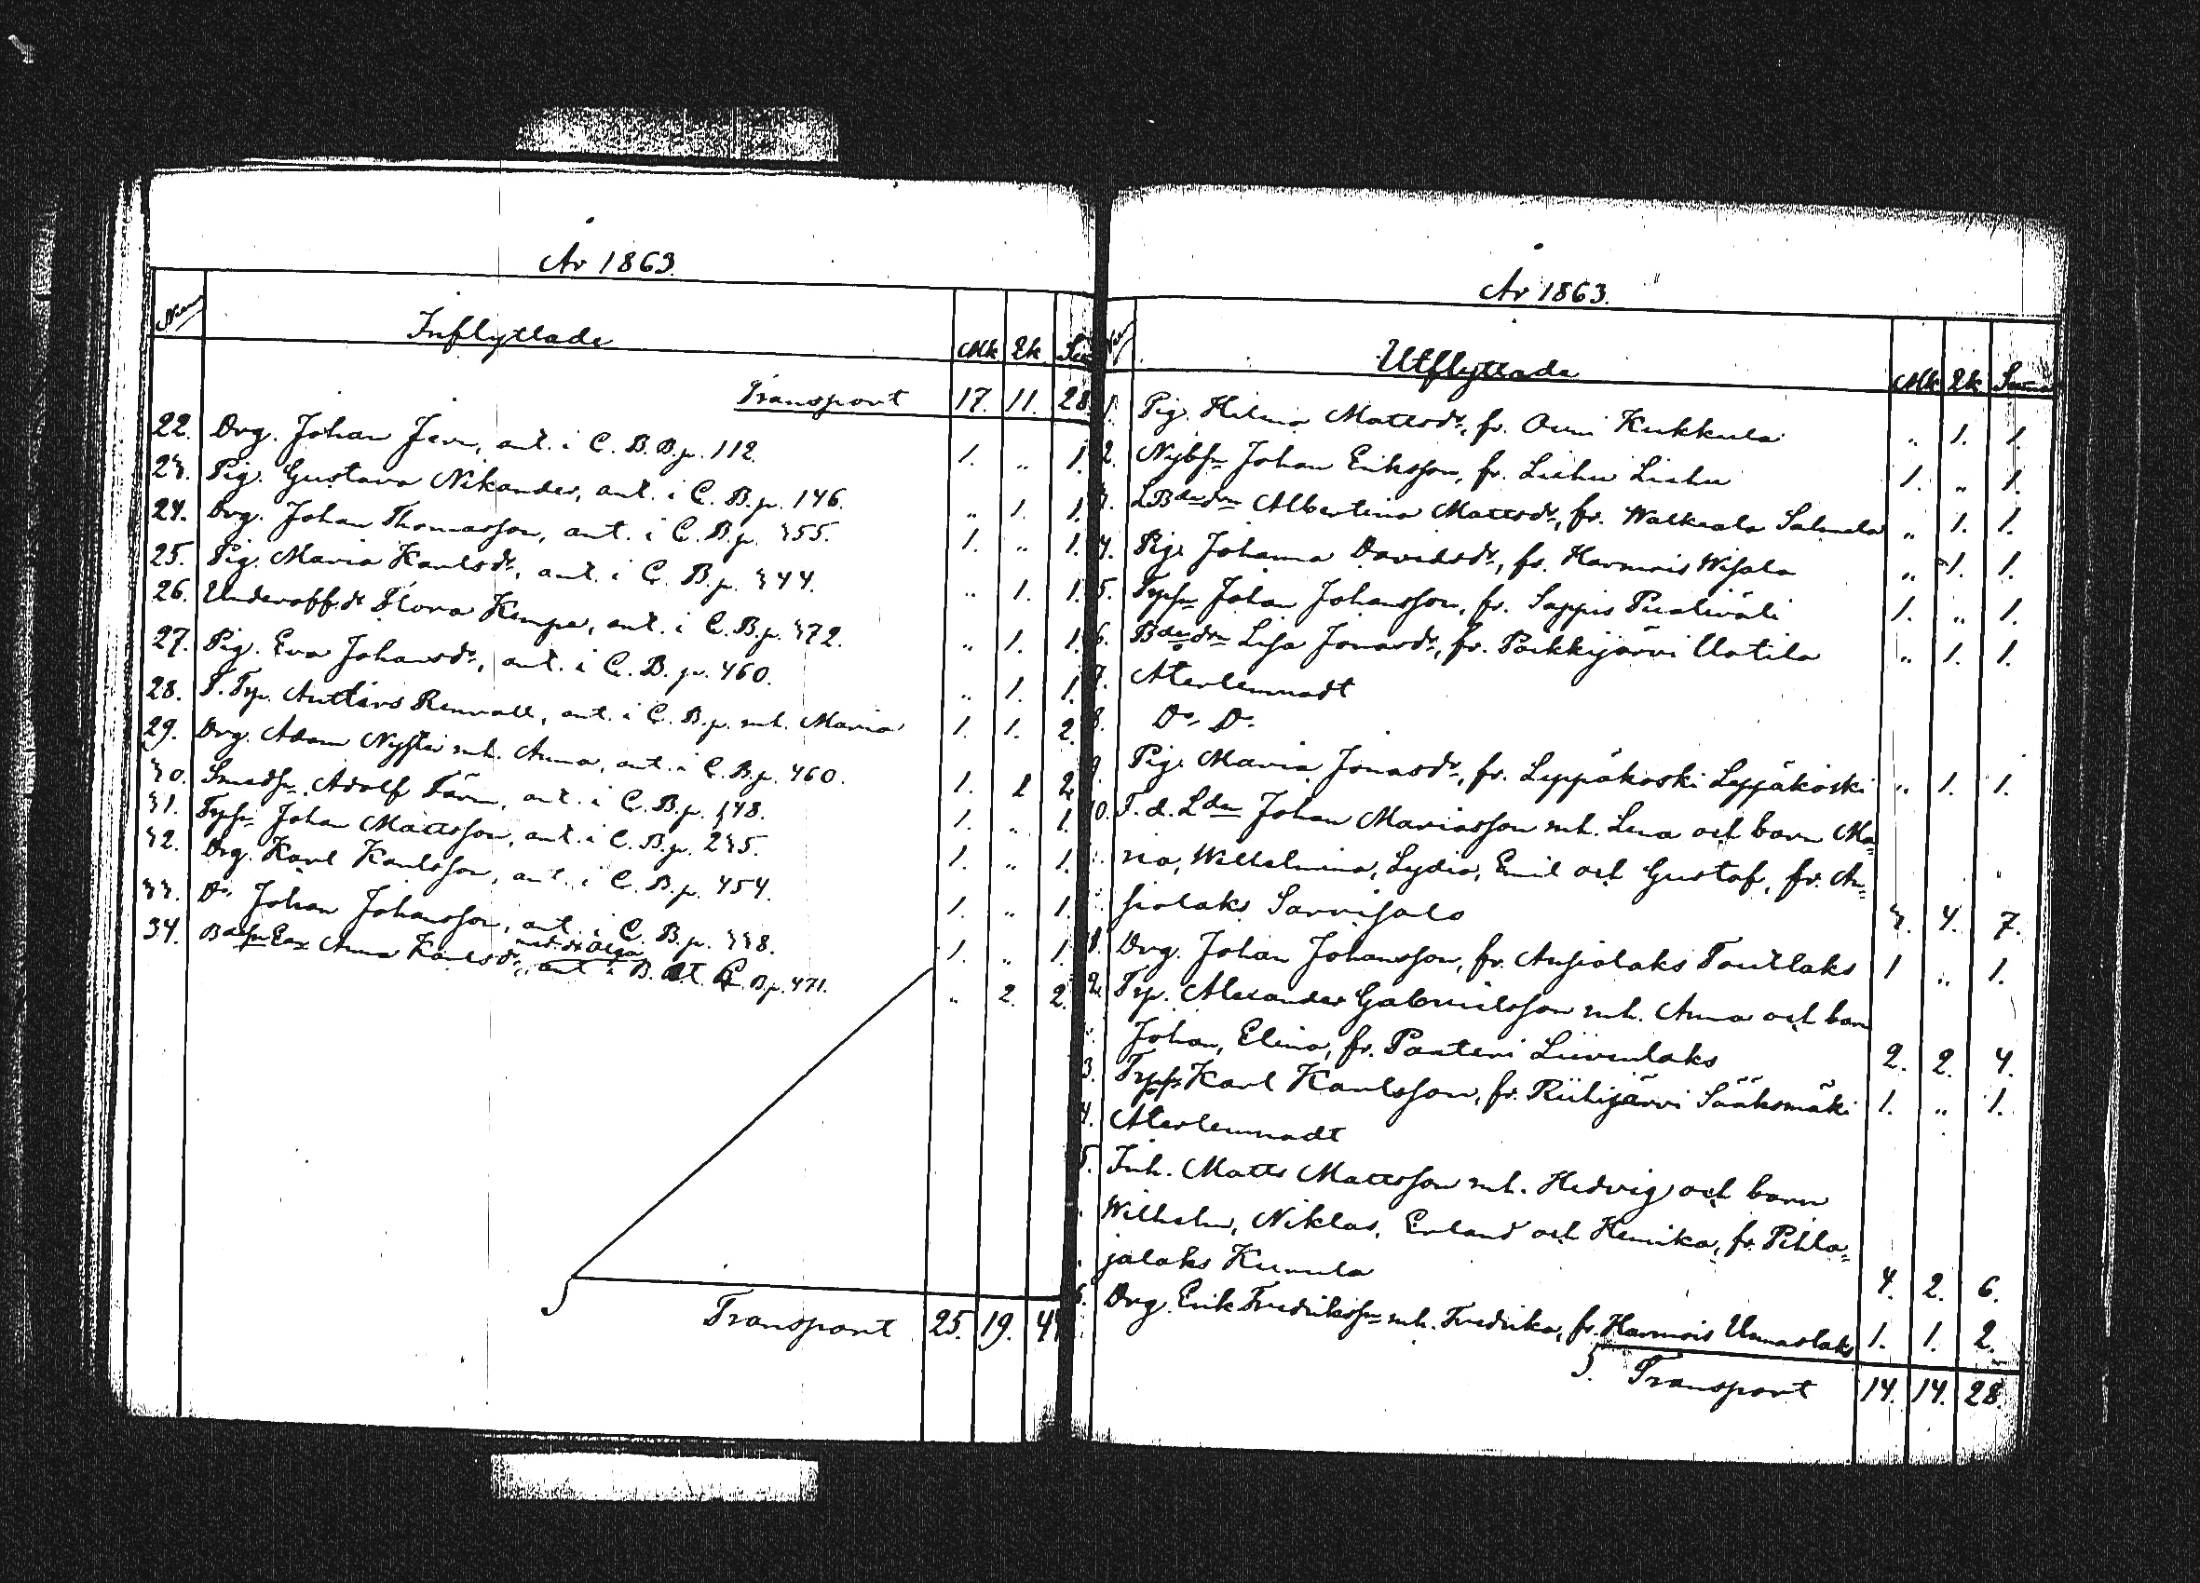 År 1863.
Inflyttade Mk Qk
Transport 17. 11. 28
22. Drg. Johan Jern, ant. i C. B. B. p. 112. 1. „ 1.
23. Pig. Gustava Nikander, ant. i C. B. p. 146. „ 1. 1.
24. Drg. Johan Thomasson, ant. i C. B. p. 355. 1. „ 1.
25. Pig. Maria Karlsdr, ant. i C. B. p. 344. „ 1. 1.
26. Underoff.dr Flora Kempe, ant. i C. B. p. 372. „ 1. 1.
27. Pig. Eva Johansdr, ant. i C. B. p. 460. „ 1. 1.
28. Renvall, ant. i C. B. p. mh. Maria 1. 1. 2.
29. Drg. Adam mh. Anna, ant. i C. B. p. 460. 1. 1 2
30. Smedsn Adolf Färm, ant. i C. B. p. 148. 1. „ 1.
31. Torpsn Johan Mattsson, ant. i C. B. p. 235. 1. „ 1.
32. Drg. Karl Karlsson, ant. i C. B. p. 454. 1. „ 1.
33. Do Johan Johansson, ant. i C. B. p. 338. 1. „ 1.
med dr Olga
34. Anna Karlsdr, ant. i B. C. B. p. 471. „ 2. 2.
Transport 25. 19. 44
År 1863.
Utflyttade Mk Qk Suma
1. Pig. Hilma Mattsdr, fr. Orni Kukkula „ 1. 1.
2. Nybsn Johan Eriksson, fr. Liehu Liehu 1. „ 1.
3. Albertina Mattsdr, fr. Walkeala Salmela „ 1. 1.
4. Pig. Johanna Davidsdr, fr. Harmois Wisala „ 1. 1.
5. Torpsn Johan Johansson, fr. Sappis Puoliväli 1. „ 1.
6. Bdedr Lisa Jonasdr, fr. Porkkijärvi Uotila „ 1. 1.
7. Återlemnadt
8. Do Do
9. Pig. Maria Jonasdr, fr. Leppäkoski Leppäkoski „ 1. 1.
10. F. d. Ldn Johan Mariasson mh. Lena och barn Ma=
ria, Wilhelmina, Lydia, Emil och Gustaf, fr. An=
siolaks Sarvisalo 3. 4. 7.
1. Drg. Johan Johansson, fr. Ansiolaks Toutlaks 1 „ 1.
2. Trp. Alexander Gabrielsson mh. Anna och barn
Johan, Elina, fr. Panteri Liivenlaks 2. 2. 4.
3. Torpsn Karl Karlsson, fr. Riihijärvi Sääksmäki 1. „ 1.
4. Återlemnadt
5. Inh. Matts Mattsson mh. Hedvig och barn
Wilhelm, Niklas, Erland och Henrika, fr. Pihla=
jalaks Kumula 4. 2. 6.
6. Drg. Erik Fredriksson mh. Fredrika, fr. Harmois Unnaslaks 1. 1. 2.
Transport 14. 14. 28.